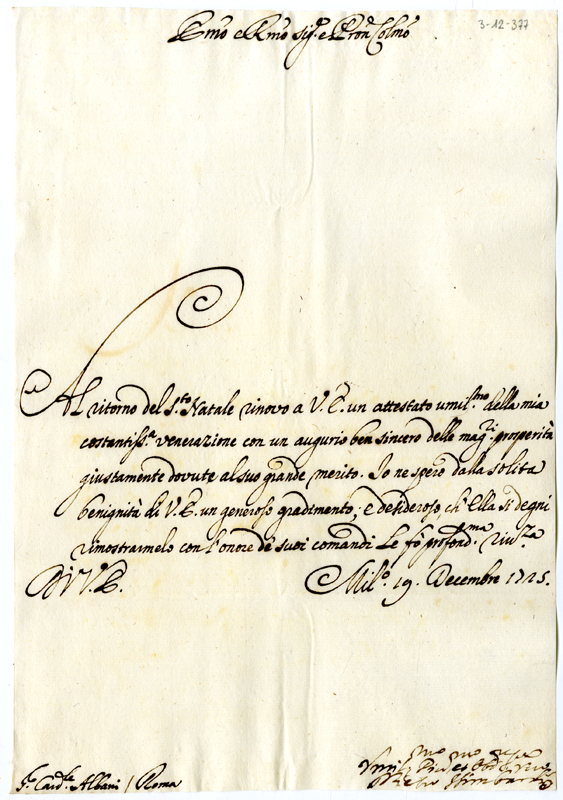 Emo e Rmo Sig.r e Pron Colmo
3-12-377
Al ritorno del S.to Natale rinovo a V. E. un attestato umil.mo della mia
costantiss.a venerazione con un augurio ben sincero delle mag.ri prosperità
giustamente dovute al suo grande merito. Io ne spero dalla solita
benignità di V. E. un generoso gradimento; e desideroso, ch'Ella si degni
rimostrarmelo con l'onore de suoi comandi Le fò profond.ma riv.za
Di V. E.
Mil.o 19. Decembre 1725.
S.r Card.le Albani / Roma
Umil.mo